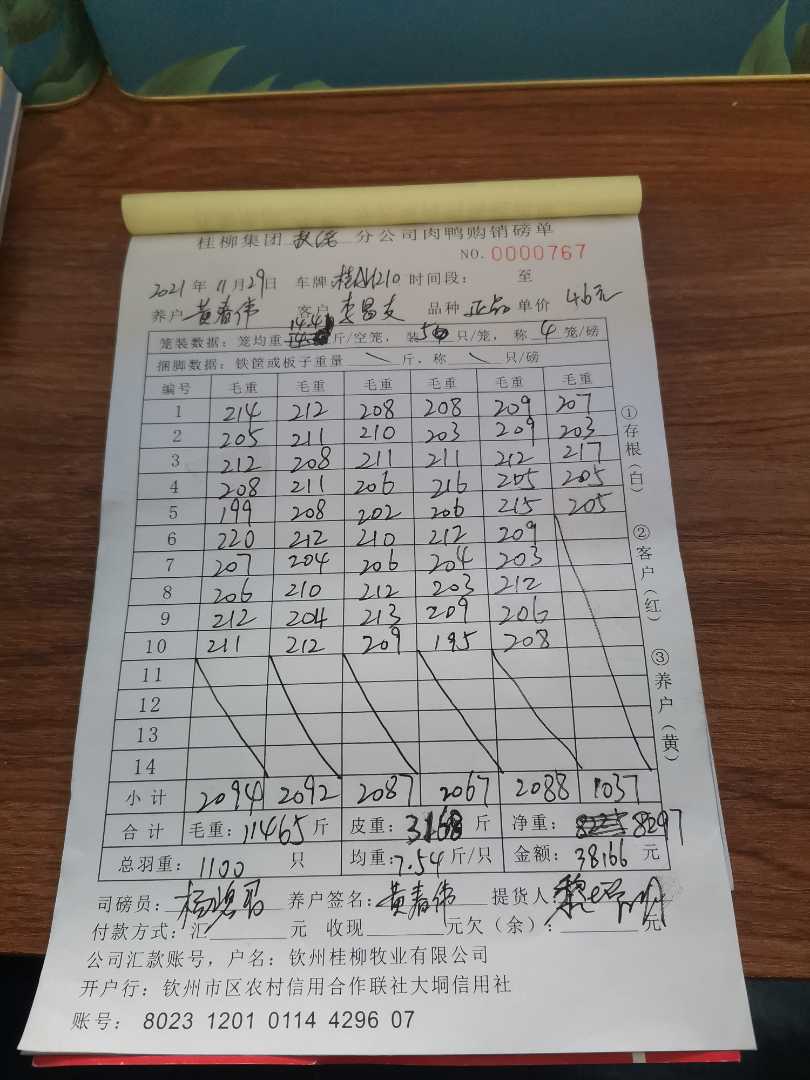 桂柳集团 分公司肉鸭购销磅单
NO. 0000767
2021 年 11 月 29 日 车牌 时间段: 至
养户 黄春伟 客户 李昌友 品种 正品 单价 4.6元
笼装数据: 笼均重 14.4 斤/空笼, 装 5 只/笼, 称 4 笼/磅
捆脚数据: 铁筐或板子重量 \ 斤, 称 \ 只/磅
编号 毛重 毛重 毛重 毛重 毛重 毛重
1 214 212 208 208 209 207
2 205 211 210 203 209 203
3 212 208 211 211 212 217
4 208 211 206 216 205 205
5 199 208 202 206 215 205
6 220 212 210 212 209
7 207 204 206 204 203
8 206 210 212 203 212
9 212 204 213 209 206
10 211 212 209 195 208
11
12
13
14
小计 2094 2092 2087 2067 2088 1037
合计 毛重: 11465 斤 皮重: 3168 斤 净重: 8297
总羽重: 1100 只 均重: 7.54 斤/只 金额: 38166 元
司磅员: 养户签名: 黄春伟 提货人
付款方式: 汇 元 收现 元欠(余): 元
公司汇款账号, 户名: 钦州桂柳牧业有限公司
开户行: 钦州市区农村信用合作联社大垌信用社
账号: 8023 1201 0114 4296 07
①存根(白)
②客户(红)
③养户(黄)